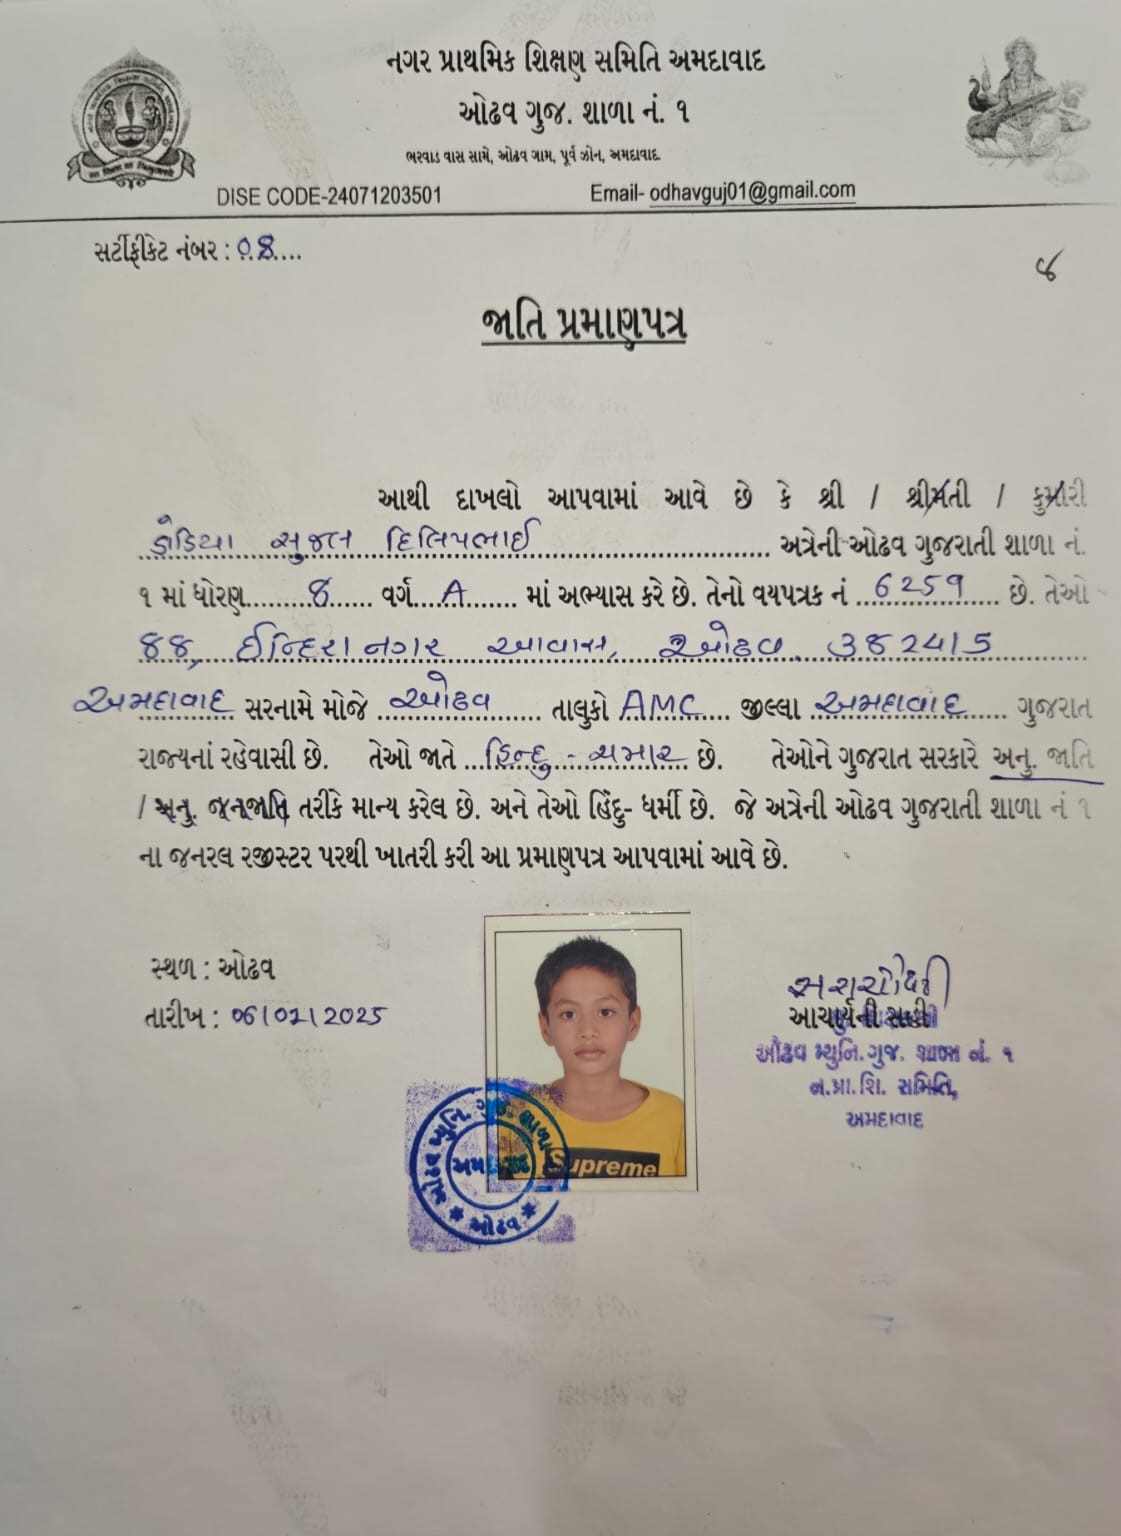 નગર પ્રાથમિક શિક્ષણ સમિતિ અમદાવાદ
ઓઢવ ગુજ. શાળા નં. ૧
ભરવાડ વાસ સામે, ઓઢવ ગામ, પૂર્વ ઝોન, અમદાવાદ
DISE CODE-24071203501 Email- odhavguj01@gmail.com
સર્ટીફીકેટ નંબર : ૦8....
જાતિ પ્રમાણપત્ર
આથી દાખલો આપવામાં આવે છે કે શ્રી / શ્રીમતી / કુમારી
સુજલ દિલિપભાઈ .......... અત્રેની ઓઢવ ગુજરાતી શાળા નં.
૧ માં ધોરણ.......8...... વર્ગ....A....... માં અભ્યાસ કરે છે. તેનો વયપત્રક નં ..6259.... છે. તેઓ
ઈન્દિરા નગર આવાસ, ઓઢવ. 382415
અમદાવાદ સરનામે મોજે ..ઓઢવ...... તાલુકો AMC.... જીલ્લા ..અમદાવાદ...... ગુજરાત
રાજ્યનાં રહેવાસી છે. તેઓ જાતે ...હિન્દુ - ચમાર... છે. તેઓને ગુજરાત સરકારે અનુ. જાતિ
/ અનુ. જનજાતિ તરીકે માન્ય કરેલ છે. અને તેઓ હિંદુ- ધર્મી છે. જે અત્રેની ઓઢવ ગુજરાતી શાળા નં ૧
ના જનરલ રજીસ્ટર પરથી ખાતરી કરી આ પ્રમાણપત્ર આપવામાં આવે છે.
સ્થળ : ઓઢવ
તારીખ : 06/01/2025
આચાર્યની સહી
ઓઢવ મ્યુનિ. ગુજ. શાળા નં. ૧
ન.પ્રા.શિ. સમિતિ,
અમદાવાદ
Supreme
ઓઢવ મ્યુનિ. ગુજ. શાળા
અમદાવાદ
* ઓઢવ *